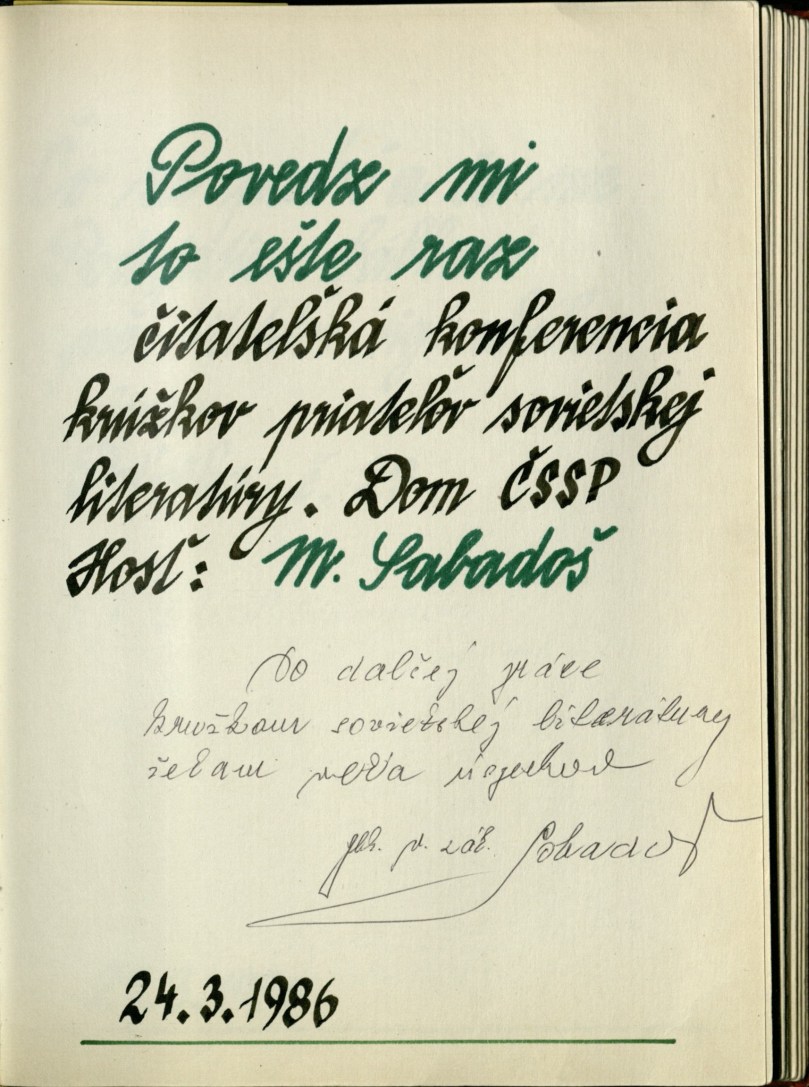 Povedz mi
to ešte raz
čitateľská konferencia
krúžkov priateľov sovietskej
literatúry. Dom ČSSP
Hosť: M. Sabadoš
Do dalčej práce
sovietskej literatury
želam veľa
Sabadoš
24.3.1986